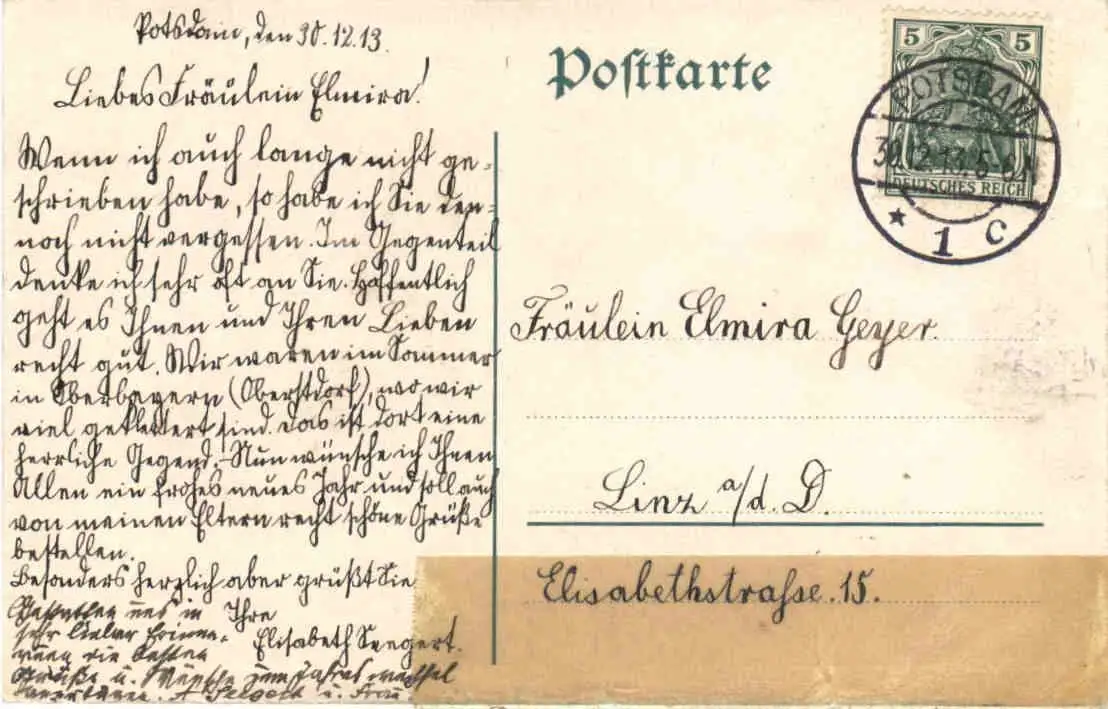 Potsdam, den 30.12.13.
Liebes Fräulein Elmira!
Wenn ich auch lange nicht ge-
schrieben habe, so habe ich Sie den-
noch nicht vergessen. Im Gegenteil
denke ich sehr oft an Sie. Hoffentlich
geht es Ihnen und Ihren Lieben
recht gut. Wir waren im Sommer
in Oberbayern (Oberstdorf), wo wir
viel geklettert sind. Das ist dort eine
herrliche Gegend. Nun wünsche ich Ihnen
Allen ein frohes neues Jahr und soll auch
von meinen Eltern recht schöne Grüße
bestellen.
Besonders herzlich aber grüßt Sie
Ihre
Elisabeth Seegert.
Gestatten uns in
sehr lieber Erinne-
rung die besten
Grüße u. Wünsche zum Jahreswechsel
u. Frau
Postkarte
5 5
DEUTSCHES REICH
POTSDAM
30.12.13.5-6N
* 1 c
Fräulein Elmira Geyer.
Linz a/d. D.
Elisabethstraße.15.